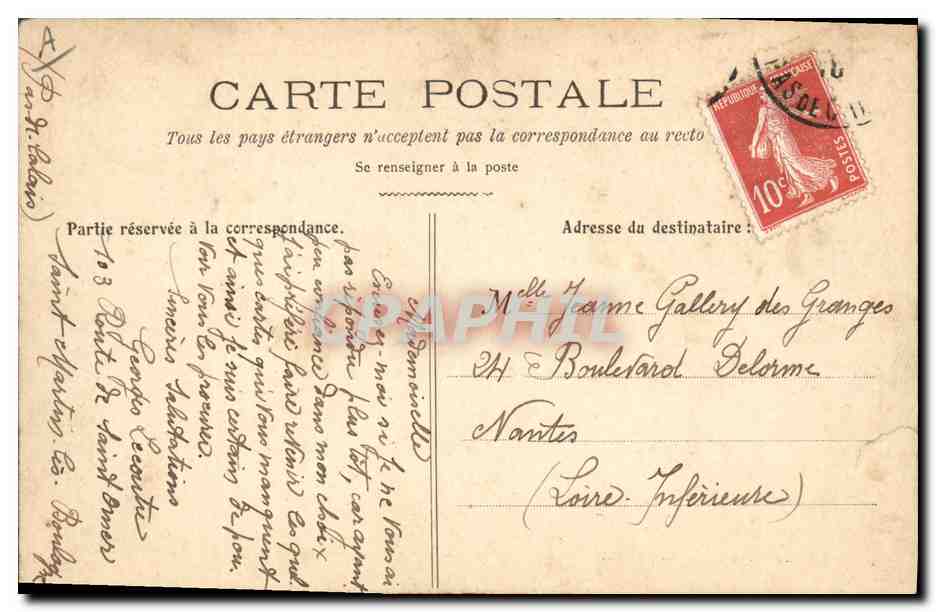 CARTE POSTALE
Tous les pays étrangers n'acceptent pas la correspondance au recto
Se renseigner à la poste
Partie réservée à la correspondance.
Adresse du destinataire :
REPUBLIQUE FRANÇAISE
POSTES
10c
AS DE C
CPAPHIL
Melle Jeanne Gallery des Granges
24 Boulevard Delorme
Nantes
(Loire-Inférieure)
Mademoiselle
Excusez-moi si je ne vous ai
pas répondu plus tôt, car ayant
peu confiance dans mon choix
j'ai préféré faire revenir les quel
ques cartes qui vous manquent
et ainsi je suis certain de pou
voir vous les procurer.
Sincères salutations
Georges Lecoutre
103 Route de Saint Omer
Saint-Martin-les-Boulogne
(Pas-de-Calais)